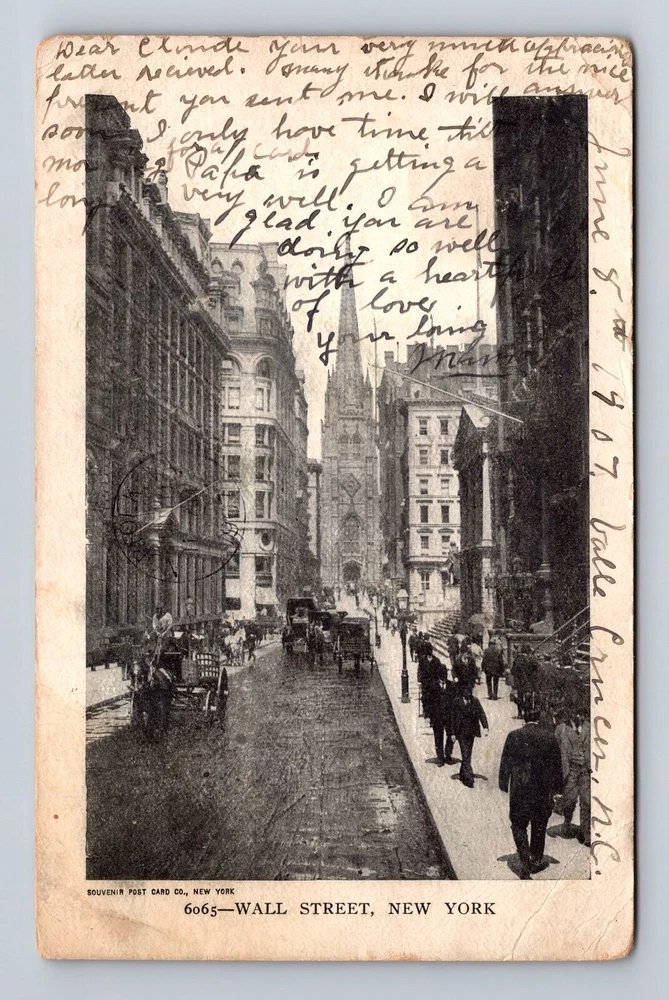 Dear Claude your very much appreciated
letter recieved. many thanks for the nice
present you sent me. I will answer
soon I only have time till
for a card
Papa is getting a
long very well. I am
glad you are
doing so well
with a heart full
of love
your loving
June 8th 1907. Valle Crucis, N.C.
SOUVENIR POST CARD CO., NEW YORK
6065—WALL STREET, NEW YORK